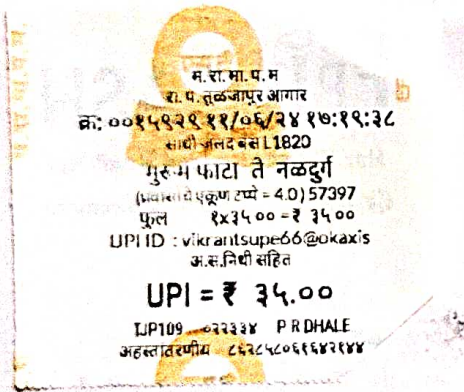 म.रा.मा.प.म
रा. प. तुळजापूर आगार
क्र: ००१५९२९ ११/०६/२४ १७:१९:३८
साधी जलद बस L1820
मुरूम फाटा ते नळदुर्ग
(प्रवासाचे एकूण टप्पे = 4.0) 57397
फुल १x३५.०० = ₹ ३५.००
UPI ID : vikrantsupe66@okaxis
अ.स.निधी सहित
UPI = ₹ ३५.००
TJP109 ०२२३३४ P R DHALE
अहस्तांतरणीय ८६२८५८०६१६४२१४४